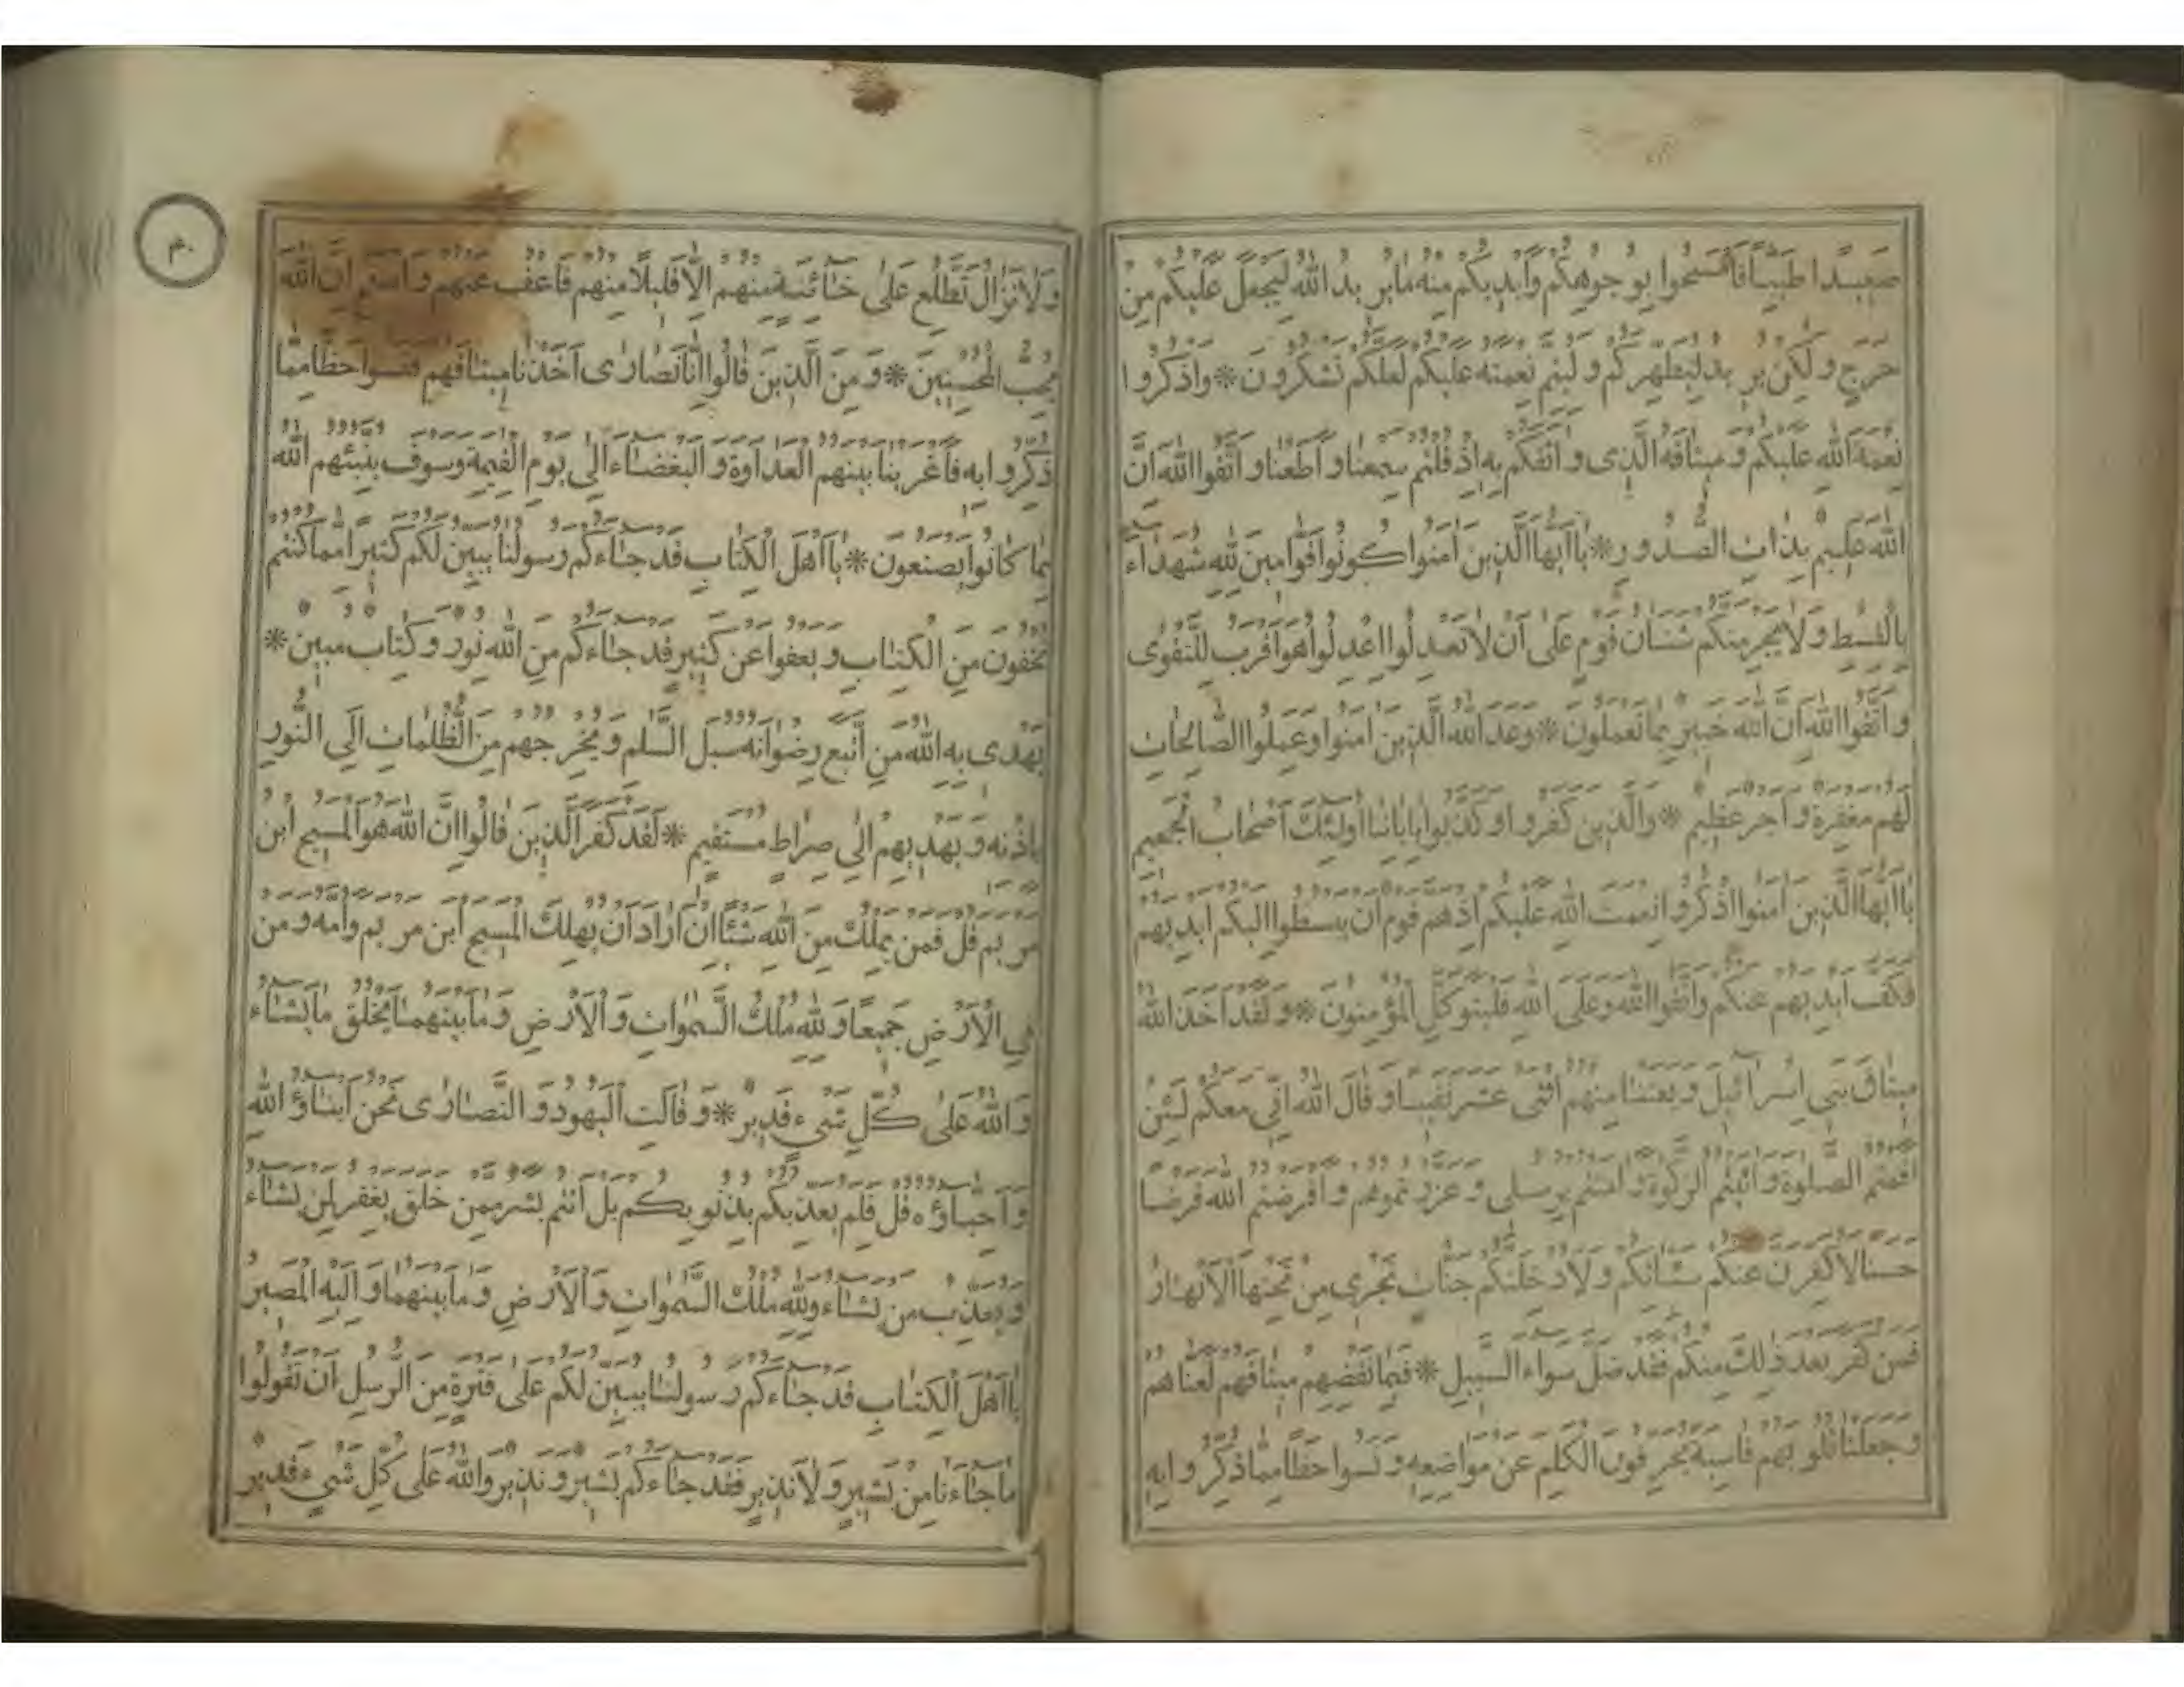 صَعِيدًا طَيِّبًا فَامْسَحُوا بِوُجُوهِكُمْ وَأَيْدِيكُمْ مِنْهُ مَا يُرِيدُ اللهُ لِيَجْعَلَ عَلَيْكُمْ مِنْ
حَرَجٍ وَلٰكِنْ يُرِيدُ لِيُطَهِّرَكُمْ وَلِيُتِمَّ نِعْمَتَهُ عَلَيْكُمْ لَعَلَّكُمْ تَشْكُرُونَ * وَاذْكُرُوا
نِعْمَةَ اللهِ عَلَيْكُمْ وَمِيثَاقَهُ الَّذِي وَاثَقَكُمْ بِهِ إِذْ قُلْتُمْ سَمِعْنَا وَأَطَعْنَا وَاتَّقُوا اللهَ إِنَّ
اللهَ عَلِيمٌ بِذَاتِ الصُّدُورِ * يَا أَيُّهَا الَّذِينَ آمَنُوا كُونُوا قَوَّامِينَ لِلّٰهِ شُهَدَاءَ
بِالْقِسْطِ وَلَا يَجْرِمَنَّكُمْ شَنَآنُ قَوْمٍ عَلَى أَنْ لَا تَعْدِلُوا اعْدِلُوا هُوَ أَقْرَبُ لِلتَّقْوَى
وَاتَّقُوا اللهَ إِنَّ اللهَ خَبِيرٌ بِمَا تَعْمَلُونَ * وَعَدَ اللهُ الَّذِينَ آمَنُوا وَعَمِلُوا الصَّالِحَاتِ
لَهُمْ مَغْفِرَةٌ وَأَجْرٌ عَظِيمٌ * وَالَّذِينَ كَفَرُوا وَكَذَّبُوا بِآيَاتِنَا أُولٰئِكَ أَصْحَابُ الْجَحِيمِ
يَا أَيُّهَا الَّذِينَ آمَنُوا اذْكُرُوا نِعْمَتَ اللهِ عَلَيْكُمْ إِذْ هَمَّ قَوْمٌ أَنْ يَبْسُطُوا إِلَيْكُمْ أَيْدِيَهُمْ
فَكَفَّ أَيْدِيَهُمْ عَنْكُمْ وَاتَّقُوا اللهَ وَعَلَى اللهِ فَلْيَتَوَكَّلِ الْمُؤْمِنُونَ * وَلَقَدْ أَخَذَ اللهُ
مِيثَاقَ بَنِي إِسْرَائِيلَ وَبَعَثْنَا مِنْهُمُ اثْنَيْ عَشَرَ نَقِيبًا وَقَالَ اللهُ إِنِّي مَعَكُمْ لَئِنْ
أَقَمْتُمُ الصَّلٰوةَ وَآتَيْتُمُ الزَّكٰوةَ وَآمَنْتُمْ بِرُسُلِي وَعَزَّرْتُمُوهُمْ وَأَقْرَضْتُمُ اللهَ قَرْضًا
حَسَنًا لَأُكَفِّرَنَّ عَنْكُمْ سَيِّئَاتِكُمْ وَلَأُدْخِلَنَّكُمْ جَنَّاتٍ تَجْرِي مِنْ تَحْتِهَا الْأَنْهَارُ
فَمَنْ كَفَرَ بَعْدَ ذٰلِكَ مِنْكُمْ فَقَدْ ضَلَّ سَوَاءَ السَّبِيلِ * فَبِمَا نَقْضِهِمْ مِيثَاقَهُمْ لَعَنَّاهُمْ
وَجَعَلْنَا قُلُوبَهُمْ قَاسِيَةً يُحَرِّفُونَ الْكَلِمَ عَنْ مَوَاضِعِهِ وَنَسُوا حَظًّا مِمَّا ذُكِّرُوا بِهِ
٤٠
وَلَا تَزَالُ تَطَّلِعُ عَلَى خَائِنَةٍ مِنْهُمْ إِلَّا قَلِيلًا مِنْهُمْ فَاعْفُ عَنْهُمْ وَاصْفَحْ إِنَّ اللهَ
يُحِبُّ الْمُحْسِنِينَ * وَمِنَ الَّذِينَ قَالُوا إِنَّا نَصَارَى أَخَذْنَا مِيثَاقَهُمْ فَنَسُوا حَظًّا مِمَّا
ذُكِّرُوا بِهِ فَأَغْرَيْنَا بَيْنَهُمُ الْعَدَاوَةَ وَالْبَغْضَاءَ إِلَى يَوْمِ الْقِيٰمَةِ وَسَوْفَ يُنَبِّئُهُمُ اللهُ
بِمَا كَانُوا يَصْنَعُونَ * يَا أَهْلَ الْكِتَابِ قَدْ جَاءَكُمْ رَسُولُنَا يُبَيِّنُ لَكُمْ كَثِيرًا مِمَّا كُنْتُمْ
تُخْفُونَ مِنَ الْكِتَابِ وَيَعْفُوا عَنْ كَثِيرٍ قَدْ جَاءَكُمْ مِنَ اللهِ نُورٌ وَكِتَابٌ مُبِينٌ *
يَهْدِي بِهِ اللهُ مَنِ اتَّبَعَ رِضْوَانَهُ سُبُلَ السَّلٰمِ وَيُخْرِجُهُمْ مِنَ الظُّلُمَاتِ إِلَى النُّورِ
بِإِذْنِهِ وَيَهْدِيهِمْ إِلَى صِرَاطٍ مُسْتَقِيمٍ * لَقَدْ كَفَرَ الَّذِينَ قَالُوا إِنَّ اللهَ هُوَ الْمَسِيحُ ابْنُ
مَرْيَمَ قُلْ فَمَنْ يَمْلِكُ مِنَ اللهِ شَيْئًا إِنْ أَرَادَ أَنْ يُهْلِكَ الْمَسِيحَ ابْنَ مَرْيَمَ وَأُمَّهُ وَمَنْ
فِي الْأَرْضِ جَمِيعًا وَلِلّٰهِ مُلْكُ السَّمٰوَاتِ وَالْأَرْضِ وَمَا بَيْنَهُمَا يَخْلُقُ مَا يَشَاءُ
وَاللهُ عَلَى كُلِّ شَيْءٍ قَدِيرٌ * وَقَالَتِ الْيَهُودُ وَالنَّصَارَى نَحْنُ أَبْنَاؤُا اللهِ
وَأَحِبَّاؤُهُ قُلْ فَلِمَ يُعَذِّبُكُمْ بِذُنُوبِكُمْ بَلْ أَنْتُمْ بَشَرٌ مِمَّنْ خَلَقَ يَغْفِرُ لِمَنْ يَشَاءُ
وَيُعَذِّبُ مَنْ يَشَاءُ وَلِلّٰهِ مُلْكُ السَّمٰوَاتِ وَالْأَرْضِ وَمَا بَيْنَهُمَا وَإِلَيْهِ الْمَصِيرُ
يَا أَهْلَ الْكِتَابِ قَدْ جَاءَكُمْ رَسُولُنَا يُبَيِّنُ لَكُمْ عَلَى فَتْرَةٍ مِنَ الرُّسُلِ أَنْ تَقُولُوا
مَا جَاءَنَا مِنْ بَشِيرٍ وَلَا نَذِيرٍ فَقَدْ جَاءَكُمْ بَشِيرٌ وَنَذِيرٌ وَاللهُ عَلَى كُلِّ شَيْءٍ قَدِيرٌ